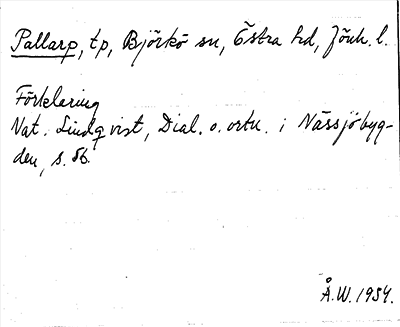 Pallarp, tp, Björkö sn, Östra hd, Jönk. l.
Förklaring
Nat. Lindqvist, Dial. o. ortn. i Nässjöbyg-
den, s. 86.
Å.W. 1954.